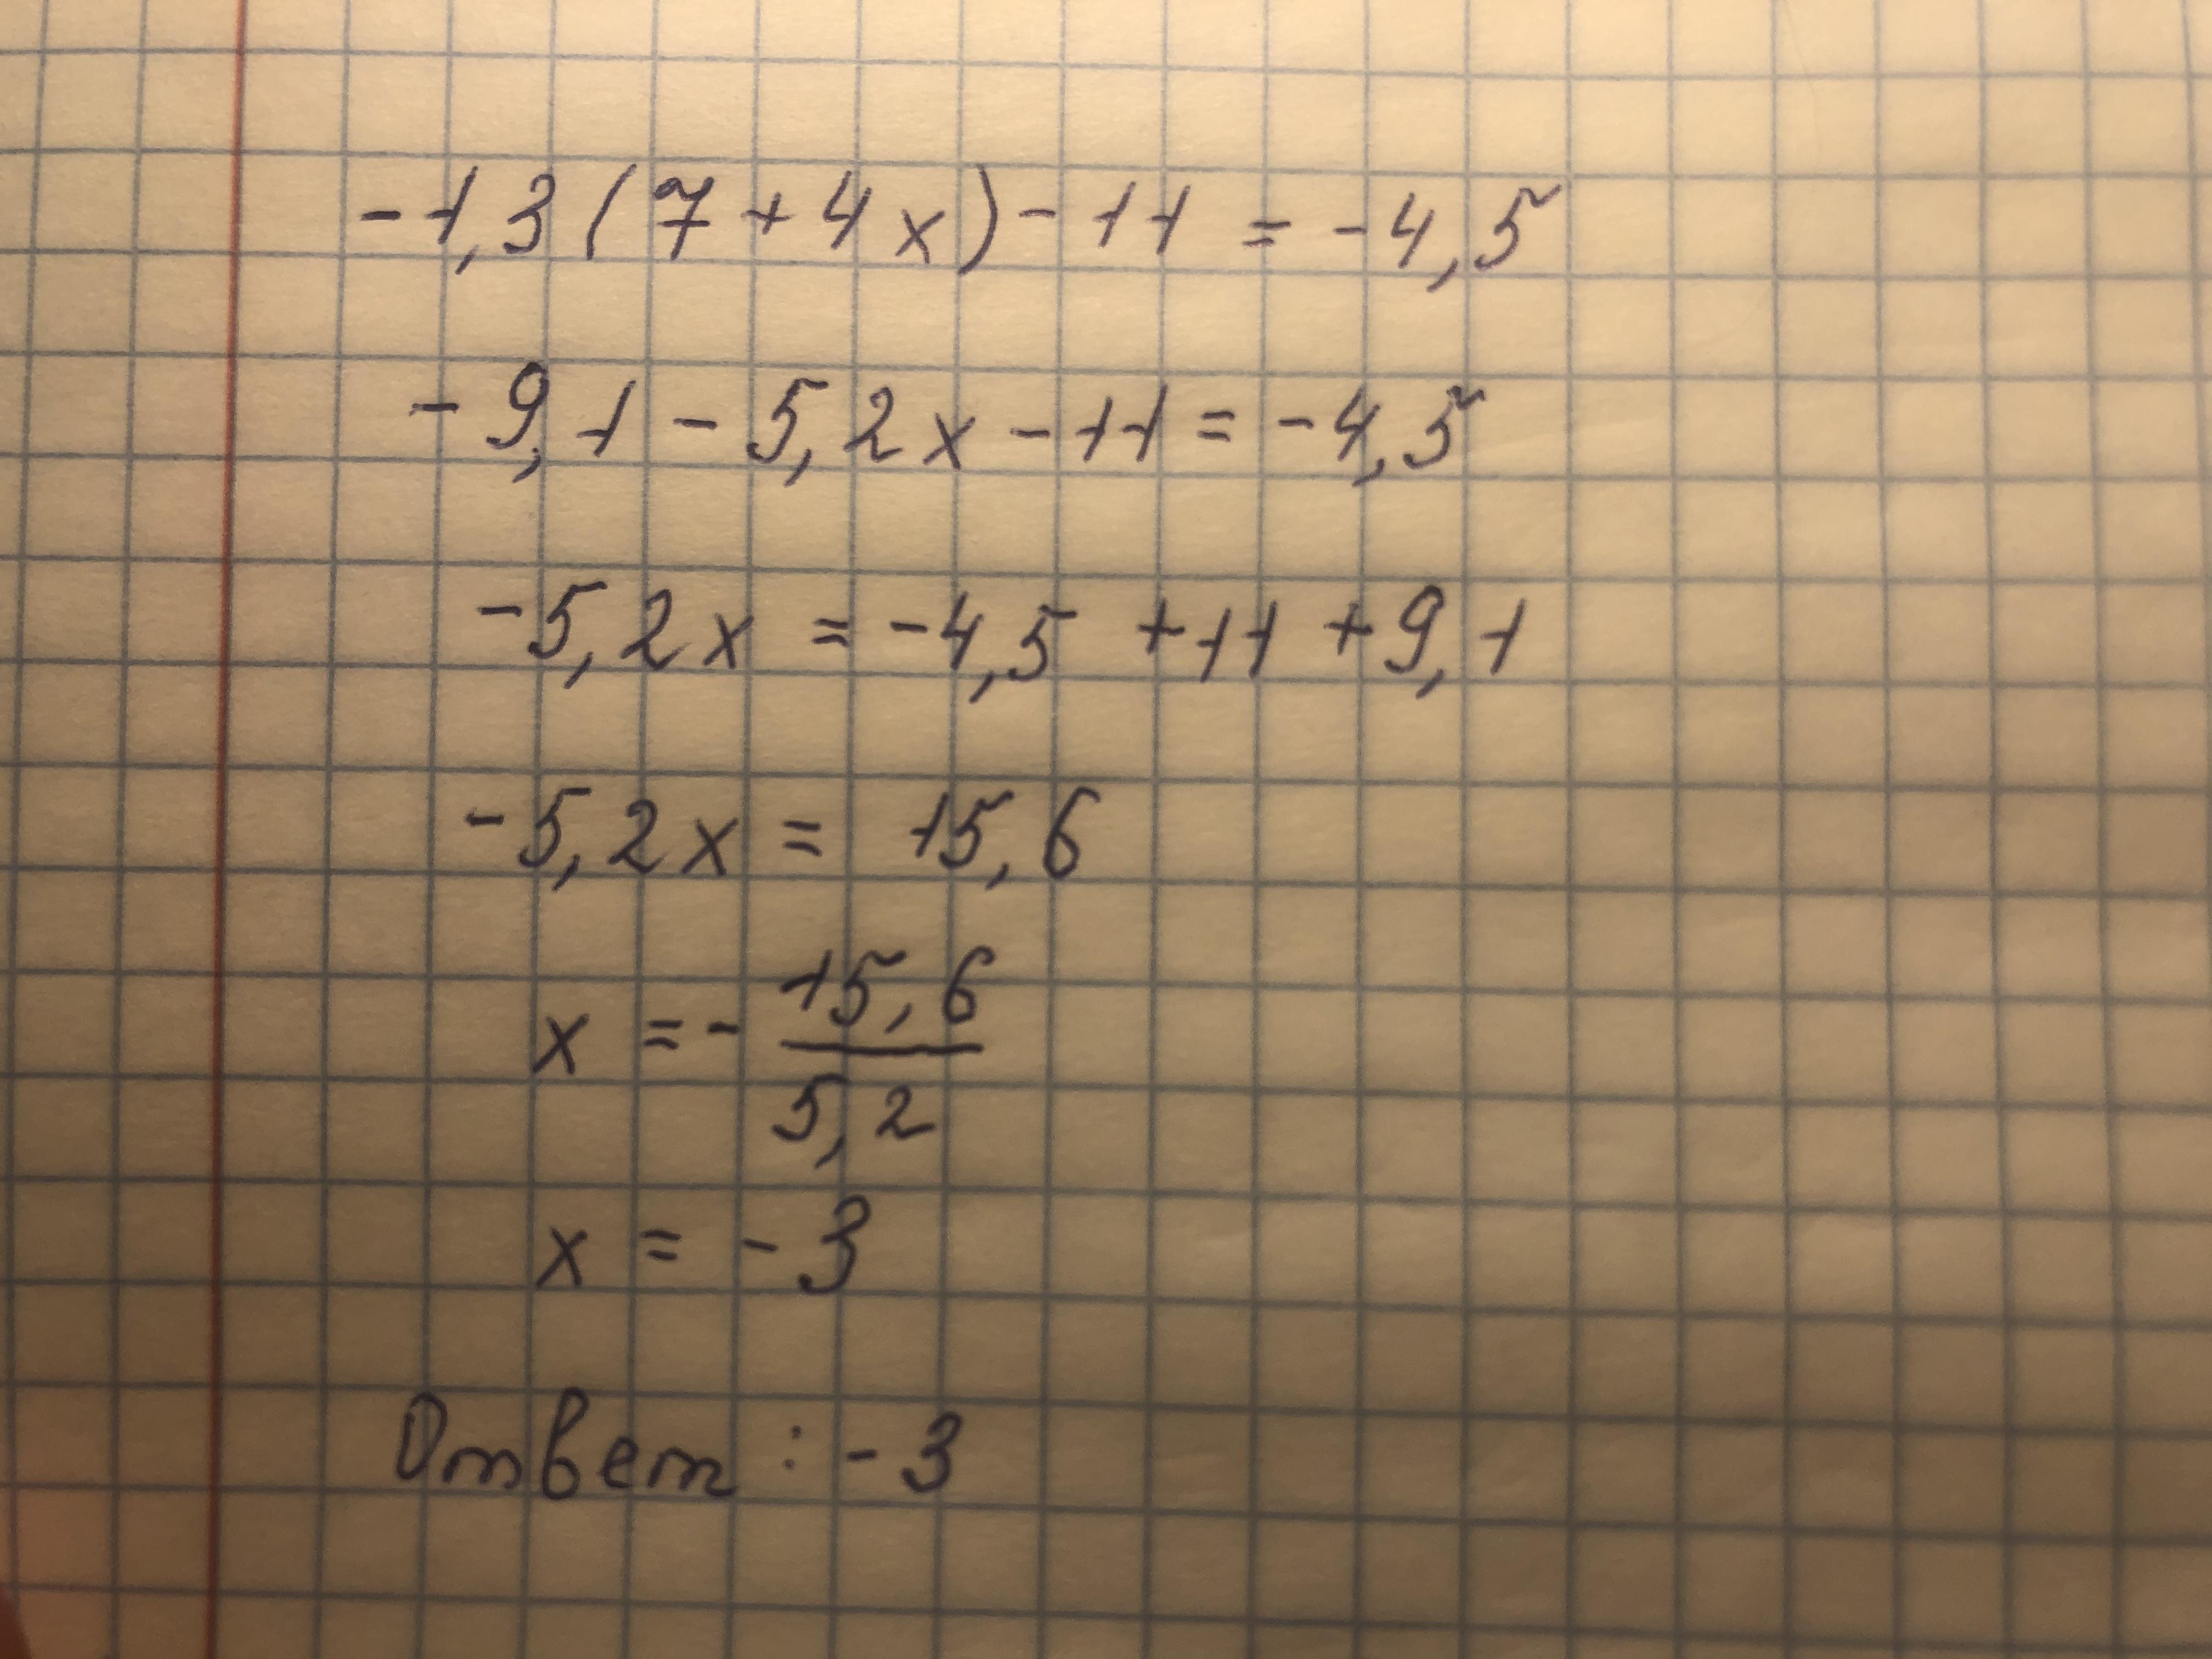 -1,3(7+4x)-11 = -4,5
-9,1-5,2x-11=-4,5
-5,2x = -4,5 +11 +9,1
-5,2x = 15,6
x = - 15,6
5,2
x = -3
Ответ: -3